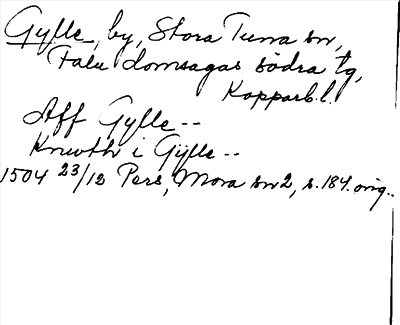 Gylle, by, Stora Tuna sn,
Falu domsagas södra tg,
Kopparb.l.
Aff Gylle --
Knwth i Gylle --
1504 23/12 Pers, Mora sn 2, s. 184. orig..